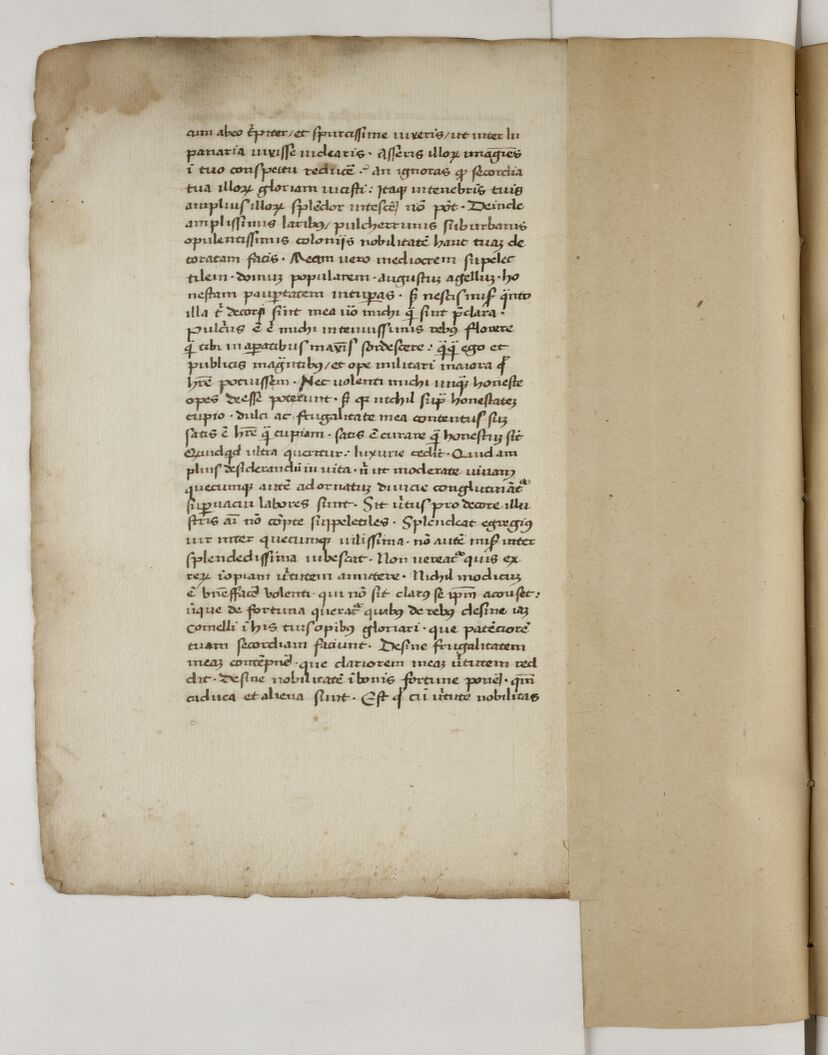 cum abeo t̄piter / et spurcissime vixeris / ut inter lu
panaria vixisse videaris · Asseris illoꝝ imagīes
ī tuo conspectu reducē · An ignoras ꝙ secordia
tua illoꝝ gloriam vicisti : Itaqꝫ in tenebris tuis
amplius illoꝝ splēdor nō pōt · Deinde
amplissimis laribꝰ / pulcherrimis suburbanis
opulentissimis colonijs nobilitatē haut tuaꝫ de
coratam facis · Meam vero mediocrem supelec
tilem · domuꝫ popularem · augustuꝫ agelluꝫ · ho
nestam paup̄tatem vitup̄as · sꝫ nescis q̄nto
illa t̄ decorsi sint mea v̄o michi q̄ sint p̄clara ·
Pulcrius ē ē michi in tenuissimis rebꝰ florere
q̄ tibi in ap̄atibus maxīs sordescere : q̄q̄ ego et
publicis maḡntibꝰ / et ope militari maiora
hr̄e potuissem · Nec volenti michi unqꝫ honeste
opes deesse poterunt · sꝫ qꝛ nichil sup̄ honestateꝫ
cupio · dulci ac frugalitate mea contentus suꝫ
satis ē hr̄e q̄ cupiam · satis ē curare q̄ honestiꝰ sīt
Quidqd ultra queritur : luxurie cedit · Quid am
plius desiderandū in vita · n̄ ut moderate vivam
quecumqꝫ autē adornatuꝫ divicie
sup̄vacui labores sunt · Sit v̄tus pro decore illu
stris aī nō cōpte suppelectiles · Splendeat egregiꝰ
vir inter quecumqꝫ vilissima · nō autē inter
splendedissima rubescat · Non vereatꝛ quis ex
reꝝ īopiam v̄tutem amittere · Nichil modicuꝫ
ē bn̄effacē volenti · qui nō sit clarꝰ se ip̄m acouset :
de fortuna queratꝛ quibꝰ de rebꝰ desine iaꝫ
Cornelli ī his tuis opibꝰ gloriari · que patēciorē
tuam secordiam faciunt · Desine frugalitatem
meaꝫ contēpnē · que clariorem meaꝫ v̄tutem red
dit · Desine nobilitatē ī bonis fortune ponē · qm̄
caduca et aliena sunt · Est cū v̄tute nobilitas